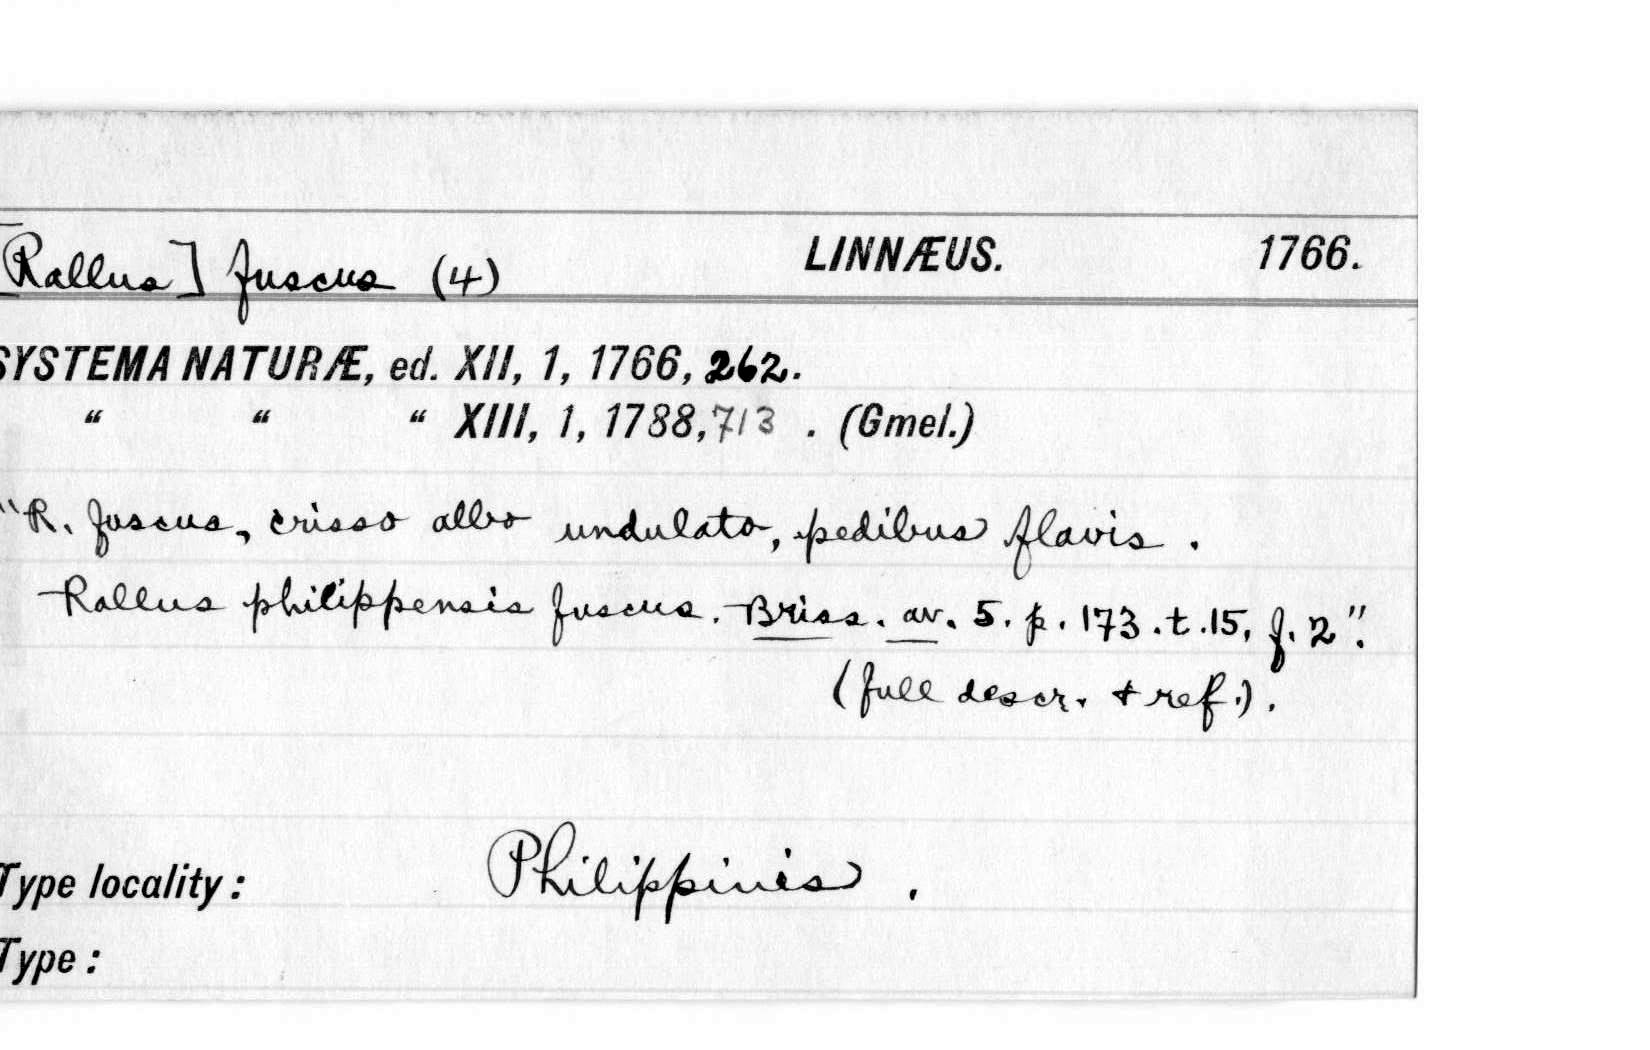 [Rallus] fuscus (4) LINNÆUS. 1766.
SYSTEMA NATURÆ, ed. XII, 1, 1766, 262.
“ “ “ XIII, 1, 1788, 713 . (Gmel.)
"R. fuscus, crisso albo undulato, pedibus flavis .
Rallus philippensis fuscus. Briss. av. 5. p. 173. t. 15, f. 2".
(full descr. & ref.) .
Type locality : Philippinis .
Type :